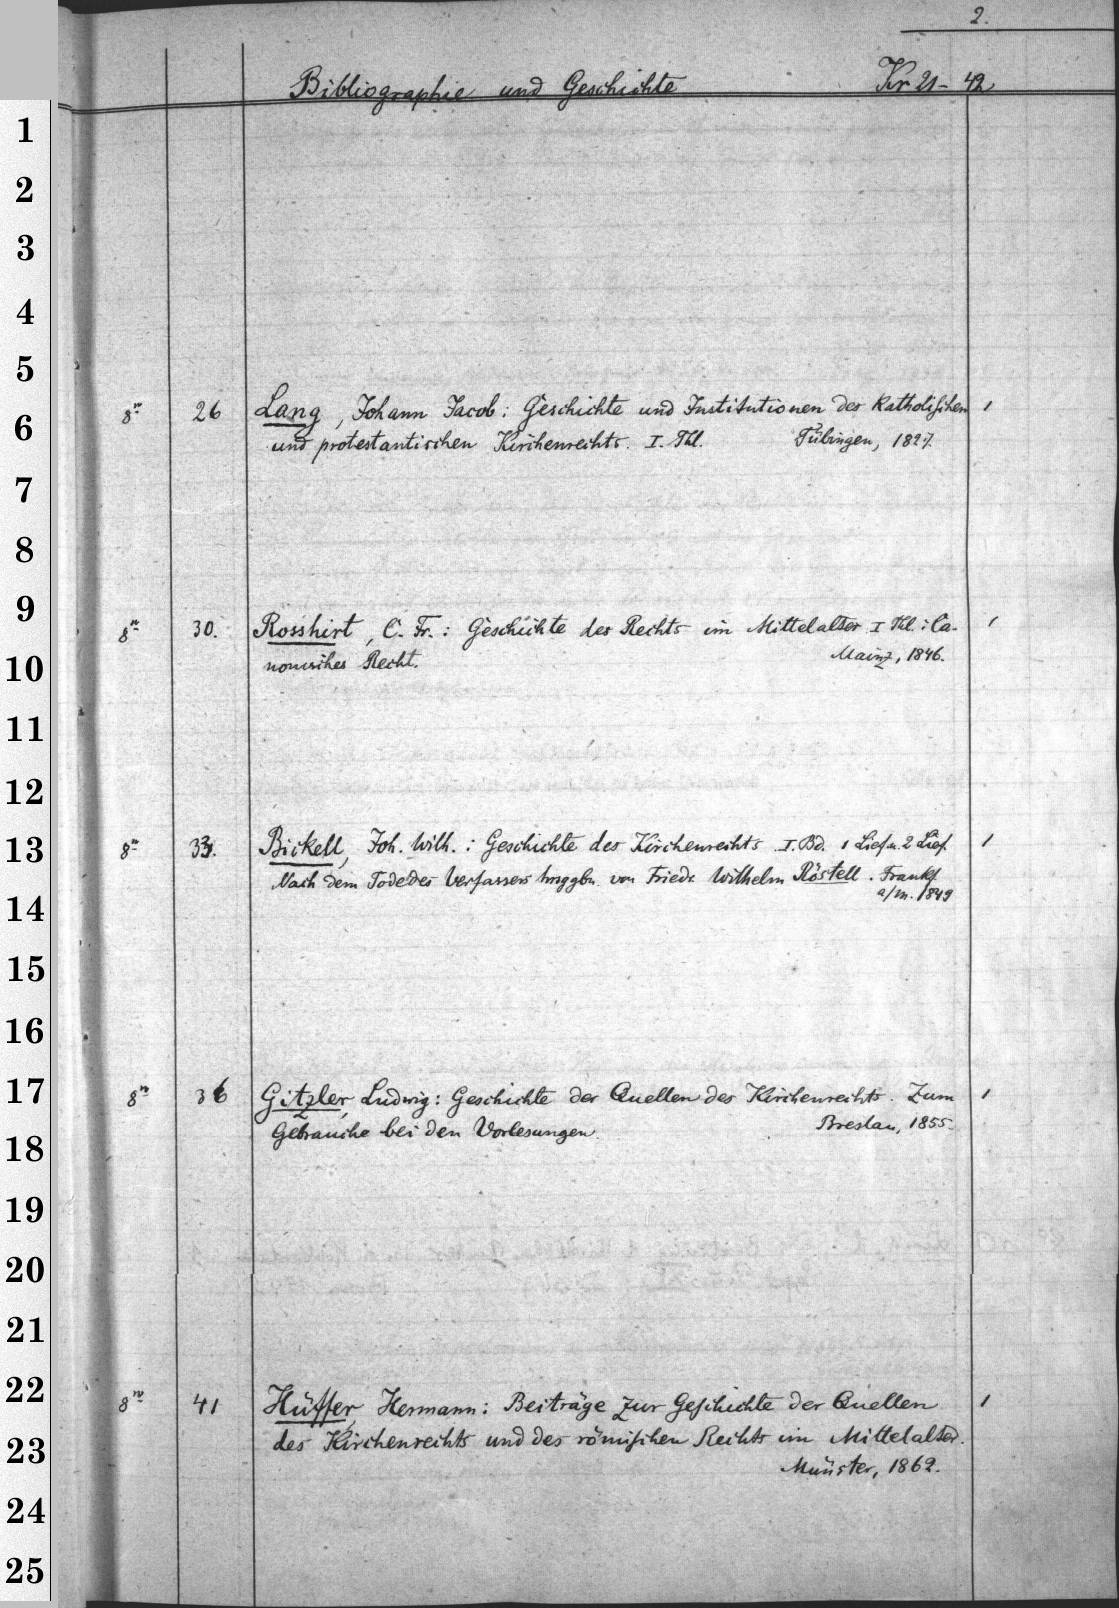 2.
Bibliographie und Geschichte Kr 21 - 42
1
2
3
4
5
8º 26 Lang, Johann Jacob: Geschichte und Institutionen des Katholischen 1
6
und protestantischen Kirchenrechts. I. Thl. Tübingen, 1827.
7
8
9
8º 30. Rosshirt, C. Fr.: Geschichte des Rechts im Mittelalter I Thl.: Ca- 1
10
nonisches Recht. Mainz, 1846.
11
12
13
8º 33. Bickell, Joh. Wilh.: Geschichte des Kirchenrechts. I. Bd. 1 Lief u. 2 Lief. 1
Nach dem Tode des Verfassers hrsggbn. von Friedr. Wilhelm Röstell. Frankf
a/M. 1849
14
15
16
17
8º 36 Gitzler, Ludwig: Geschichte der Quellen des Kirchenrechts. Zum 1
Gebrauche bei den Vorlesungen. Breslau, 1855.
18
19
20
21
22
8º 41 Hüffer, Hermann: Beiträge zur Geschichte der Quellen 1
des Kirchenrechts und des römischen Rechts im Mittelalter.
23
Münster, 1862.
24
25